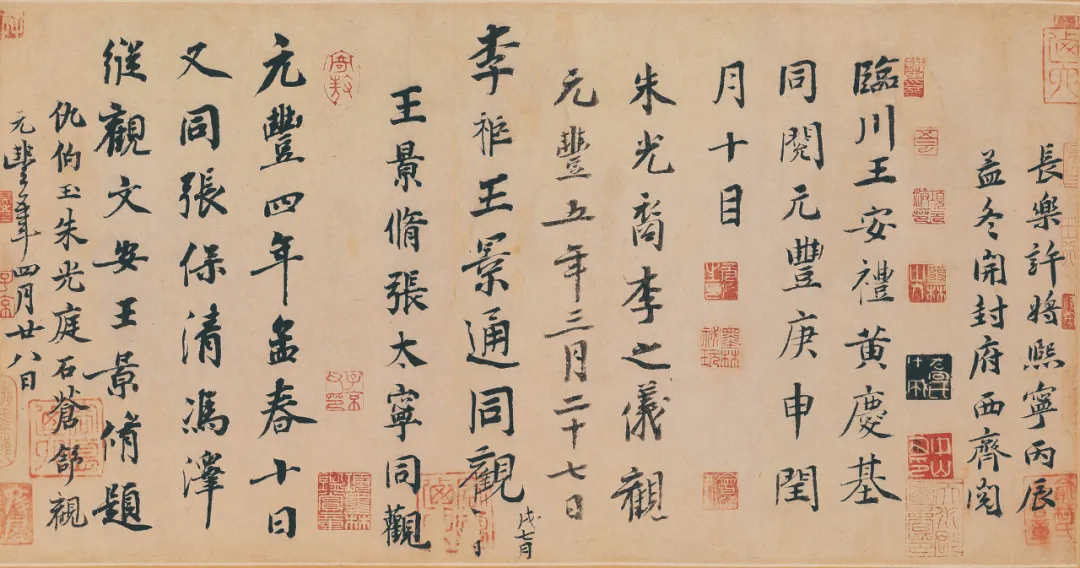 長樂許將熙寧丙辰
孟冬開封府西齋閱
臨川王安禮黃慶基
同閱元豐庚申閏
月十日
朱光裔李之儀觀
元豐五年三月二十七日
李秬王景通同觀
戌七月
王景脩張太寧同觀
元豐四年孟春十日
又同張保清馮澤
縱觀文安王景脩題
仇伯玉朱光庭石蒼舒觀
元豐年四月廿八日